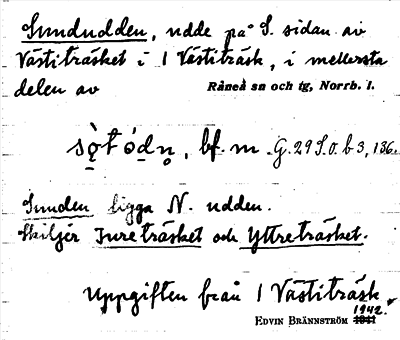 Sundudden, udde på S. sidan av
Västiträsket i 1 Västiträsk, i mellersta
delen av
Råneå sn och tg, Norrb. l.
bf. m. G. 29 S. o. b 3, 136.
Sunden ligga N. udden.
Skiljer Jureträsket och Yttreträsket.
Uppgiften från 1 Västiträsk.
1942.
EDVIN BRÄNNSTRÖM 1941